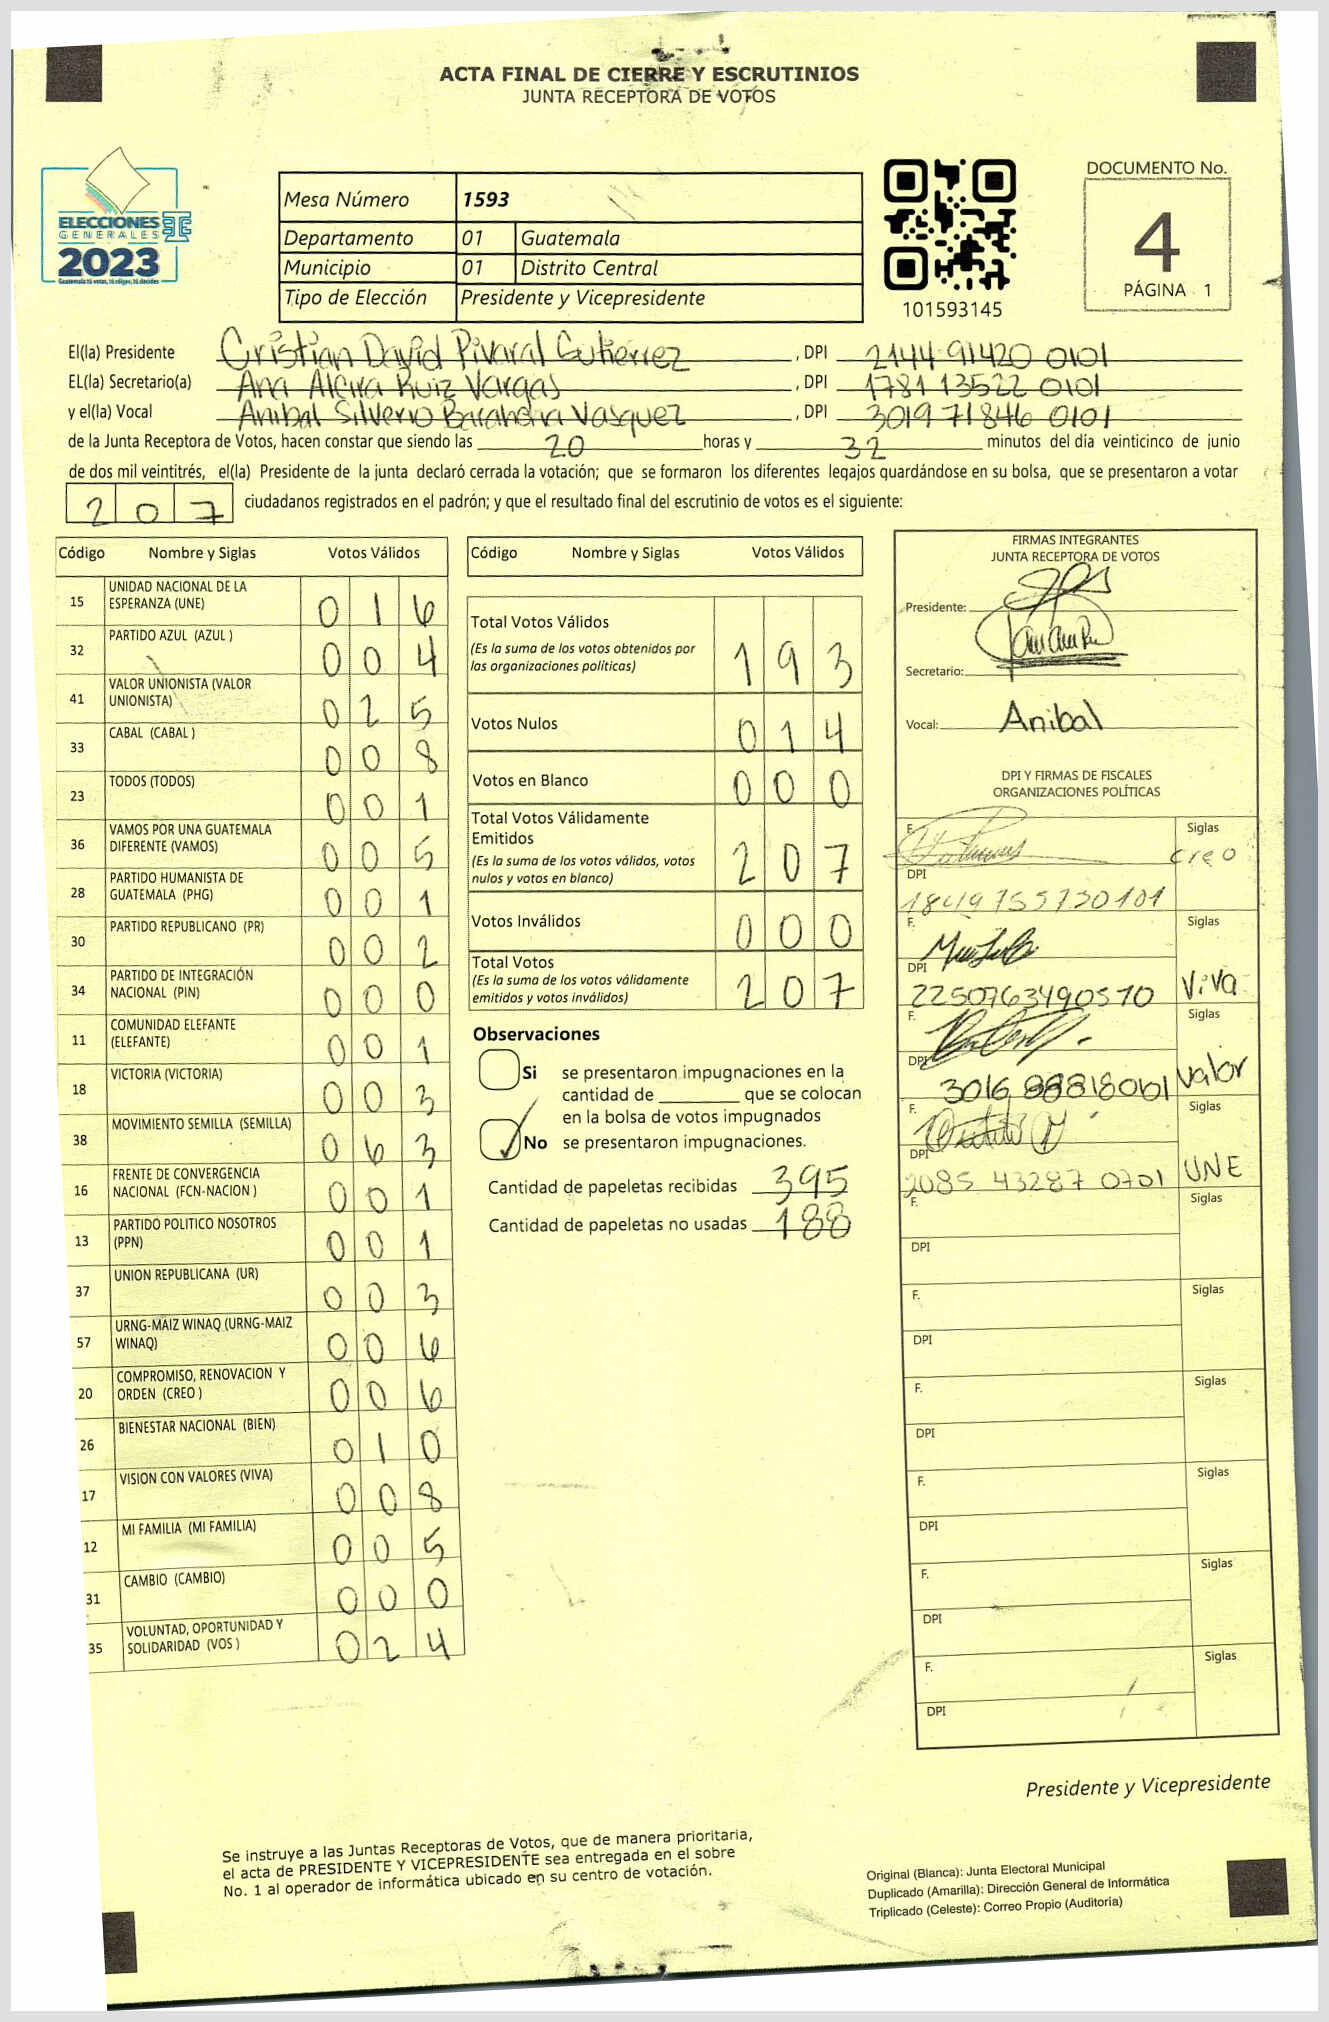 ACTA FINAL DE CIERRE Y ESCRUTINIOS
JUNTA RECEPTORA DE VOTOS
ELECCIONES
GENERALES
2023
Mesa Número 1593
Departamento 01 Guatemala
Municipio 01 Distrito Central
Tipo de Elección Presidente y Vicepresidente
101593145
DOCUMENTO No.
4
PÁGINA 1
El(la) Presidente Cristian David Pivaral Gutierrez , DPI 2144 91420 0101
EL(la) Secretario(a) Ana Alcira Ruiz Vargas , DPI 1781 13522 0101
y el(la) Vocal Anibal Silverio Barahona Vasquez , DPI 3019 71846 0101
de la Junta Receptora de Votos, hacen constar que siendo las 20 horas y 32 minutos del día veinticinco de junio
de dos mil veintitrés, el(la) Presidente de la junta declaró cerrada la votación; que se formaron los diferentes legajos quardándose en su bolsa, que se presentaron a votar
2 0 7 ciudadanos registrados en el padrón; y que el resultado final del escrutinio de votos es el siguiente:
Código Nombre y Siglas Votos Válidos
15 UNIDAD NACIONAL DE LA
ESPERANZA (UNE) 0 1 6
32 PARTIDO AZUL (AZUL ) 0 0 4
41 VALOR UNIONISTA (VALOR
UNIONISTA) 0 2 5
33 CABAL (CABAL ) 0 0 8
23 TODOS (TODOS) 0 0 1
36 VAMOS POR UNA GUATEMALA
DIFERENTE (VAMOS) 0 0 5
28 PARTIDO HUMANISTA DE
GUATEMALA (PHG) 0 0 1
30 PARTIDO REPUBLICANO (PR) 0 0 2
34 PARTIDO DE INTEGRACIÓN
NACIONAL (PIN) 0 0 0
11 COMUNIDAD ELEFANTE
(ELEFANTE) 0 0 1
18 VICTORIA (VICTORIA) 0 0 3
38 MOVIMIENTO SEMILLA (SEMILLA) 0 6 3
16 FRENTE DE CONVERGENCIA
NACIONAL (FCN-NACION ) 0 0 1
13 PARTIDO POLITICO NOSOTROS
(PPN) 0 0 1
37 UNION REPUBLICANA (UR) 0 0 3
57 URNG-MAIZ WINAQ (URNG-MAIZ
WINAQ) 0 0 6
20 COMPROMISO, RENOVACION Y
ORDEN (CREO ) 0 0 6
26 BIENESTAR NACIONAL (BIEN) 0 1 0
17 VISION CON VALORES (VIVA) 0 0 8
12 MI FAMILIA (MI FAMILIA) 0 0 5
31 CAMBIO (CAMBIO) 0 0 0
35 VOLUNTAD, OPORTUNIDAD Y
SOLIDARIDAD (VOS ) 0 2 4
Código Nombre y Siglas Votos Válidos
Total Votos Válidos
(Es la suma de los votos obtenidos por
las organizaciones políticas) 1 9 3
Votos Nulos 0 1 4
Votos en Blanco 0 0 0
Total Votos Válidamente
Emitidos
(Es la suma de los votos válidos, votos
nulos y votos en blanco) 2 0 7
Votos Inválidos 0 0 0
Total Votos
(Es la suma de los votos válidamente
emitidos y votos inválidos) 2 0 7
Observaciones
Si se presentaron impugnaciones en la
cantidad de ________ que se colocan
en la bolsa de votos impugnados
No se presentaron impugnaciones.
Cantidad de papeletas recibidas 395
Cantidad de papeletas no usadas 188
FIRMAS INTEGRANTES
JUNTA RECEPTORA DE VOTOS
Presidente:
Secretario:
Vocal: Anibal
DPI Y FIRMAS DE FISCALES
ORGANIZACIONES POLÍTICAS
F. Siglas
creo
DPI
1849755730101
F. Siglas
DPI
2250763490570 Viva
F. Siglas
DPI
3016 88818 0101 Valor
F. Siglas
DPI
2085 43287 0701 UNE
F. Siglas
DPI
F. Siglas
DPI
F. Siglas
DPI
F. Siglas
DPI
F. Siglas
DPI
F. Siglas
DPI
Presidente y Vicepresidente
Se instruye a las Juntas Receptoras de Votos, que de manera prioritaria,
el acta de PRESIDENTE Y VICEPRESIDENTE sea entregada en el sobre
No. 1 al operador de informática ubicado en su centro de votación.
Original (Blanca): Junta Electoral Municipal
Duplicado (Amarilla): Dirección General de Informática
Triplicado (Celeste): Correo Propio (Auditoría)